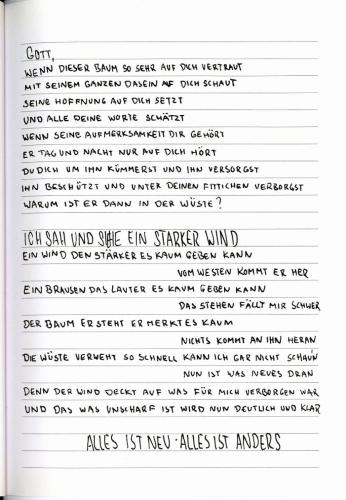 GOTT,
WENN DIESER BAUM SO SEHR AUF DICH VERTRAUT
MIT SEINEM GANZEN DASEIN AUF DICH SCHAUT
SEINE HOFFNUNG AUF DICH SETZT
UND ALLE DEINE WORTE SCHÄTZT
WENN SEINE AUFMERKSAMKEIT DIR GEHÖRT
ER TAG UND NACHT NUR AUF DICH HÖRT
DU DICH UM IHN KÜMMERST UND IHN VERSORGST
IHN BESCHÜTZT UND UNTER DEINEN FITTICHEN VERBORGST
WARUM IST ER DANN IN DER WÜSTE?
ICH SAH UND SIEHE EIN STARKER WIND
EIN WIND DEN STÄRKER ES KAUM GEBEN KANN
VOM WESTEN KOMMT ER HER
EIN BRAUSEN DAS LAUTER ES KAUM GEBEN KANN
DAS STEHEN FÄLLT MIR SCHWER
DER BAUM ER STEHT ER MERKT ES KAUM
NICHTS KOMMT AN IHN HERAN
DIE WÜSTE VERWEHT SO SCHNELL KANN ICH GAR NICHT SCHAUN
NUN IST WAS NEUES DRAN
DENN DER WIND DECKT AUF WAS FÜR MICH VERBORGEN WAR
UND DAS WAS UNSCHARF IST WIRD NUN DEUTLICH UND KLAR
ALLES IST NEU · ALLES IST ANDERS